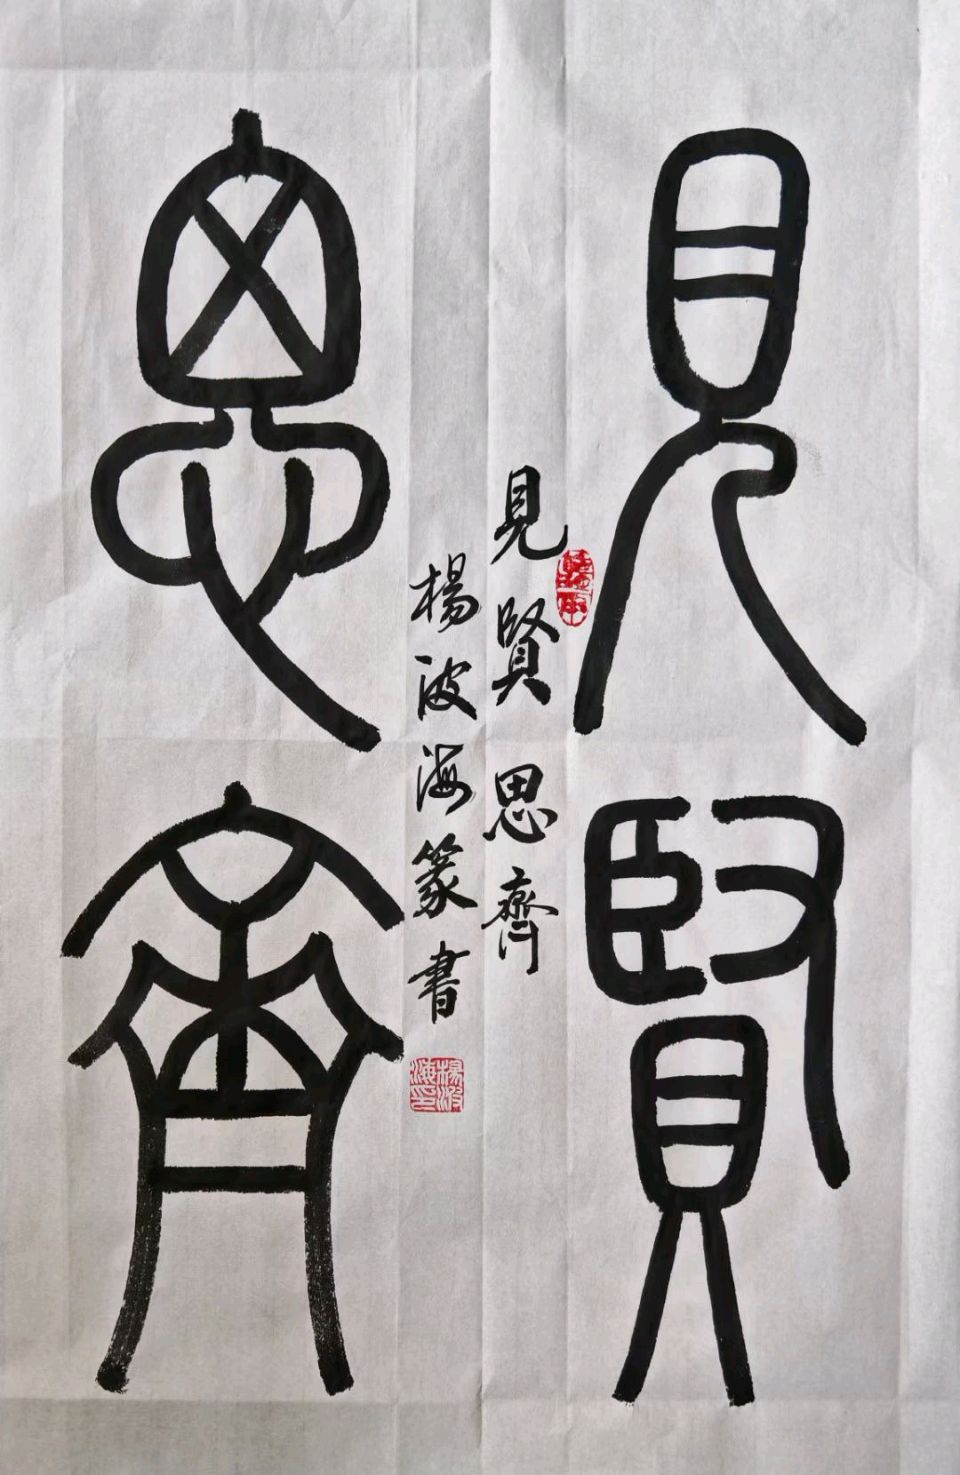 見賢
思齊
見賢思齊
楊波海篆書
楊波海印